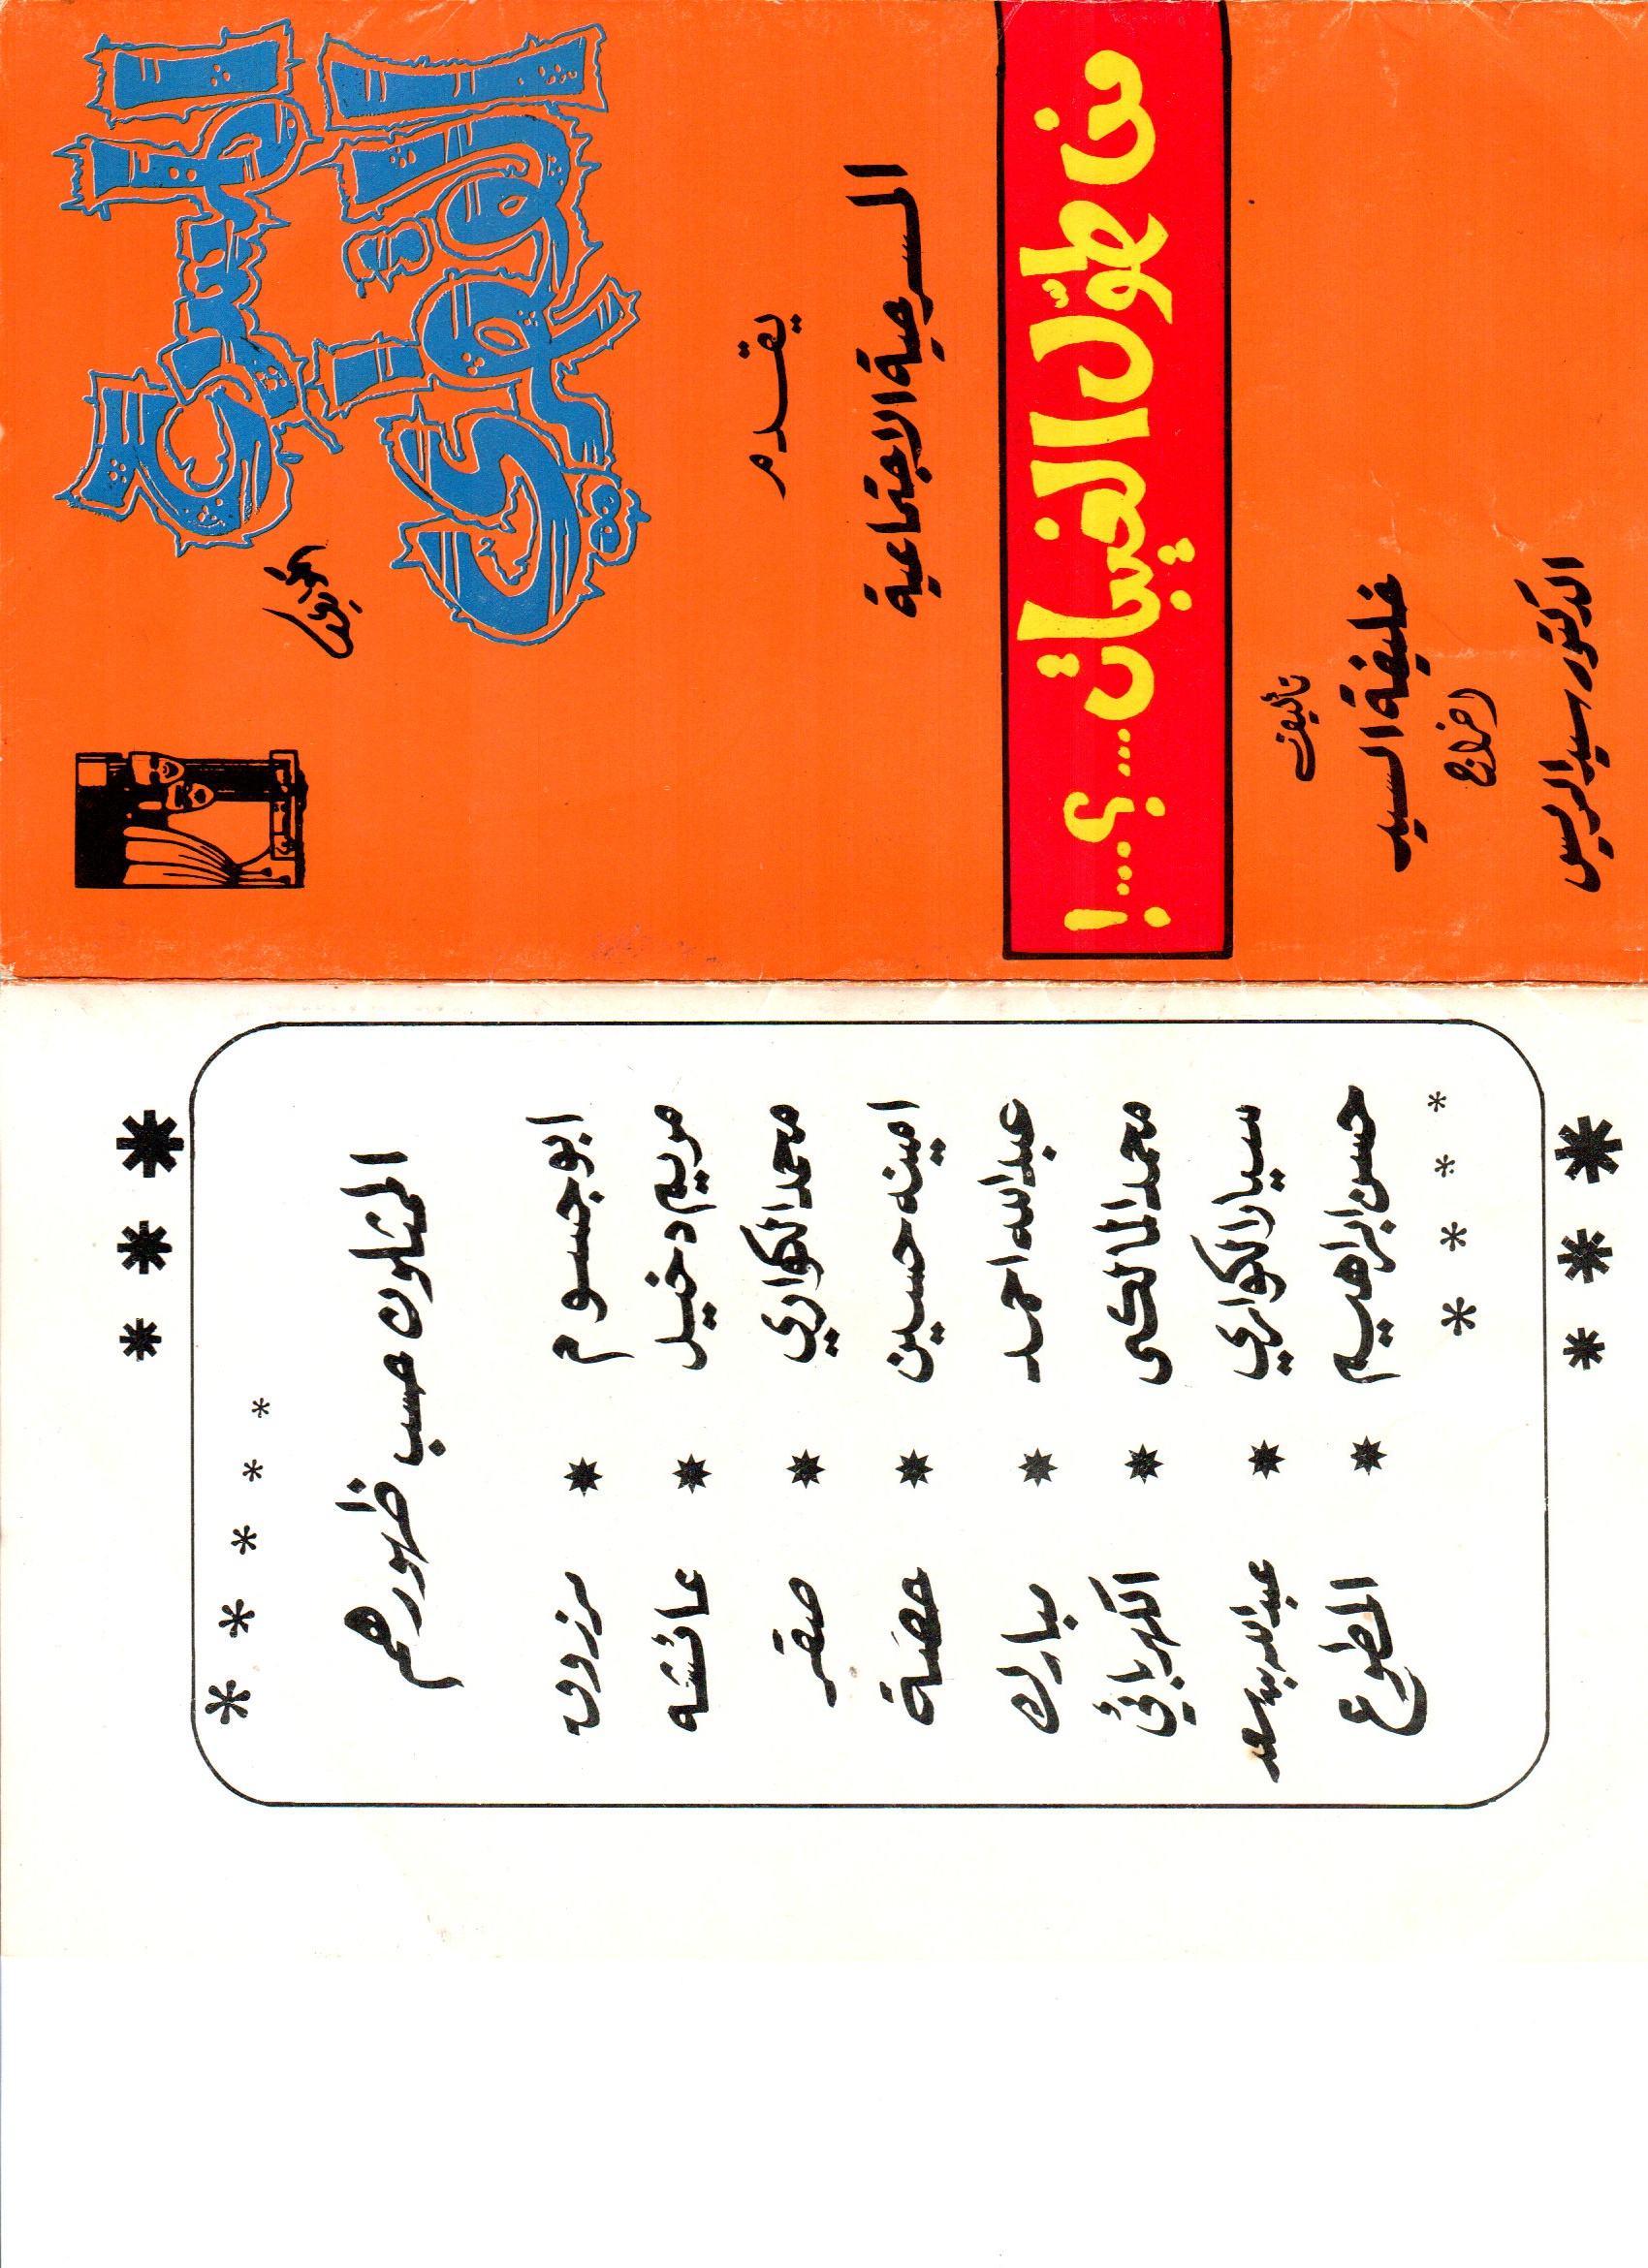 المسرح
القطري
يقدم
المسرحية الاجتماعية
من طوّل الغيبات...؟...!
تأليف
خليفة السيد
اخراج
الدكتور سيد
الممثلون حسب ظهورهم
ابو جسوم * مرزوق
مريم دخيل * عائشه
محمد الكواري * صقر
امينه حسين * حصة
عبدالله احمد * مبارك
محمد المالكى * الكهربائي
سيار الكواري * عبدالله بن سعد
حسن ابراهيم * المطوع